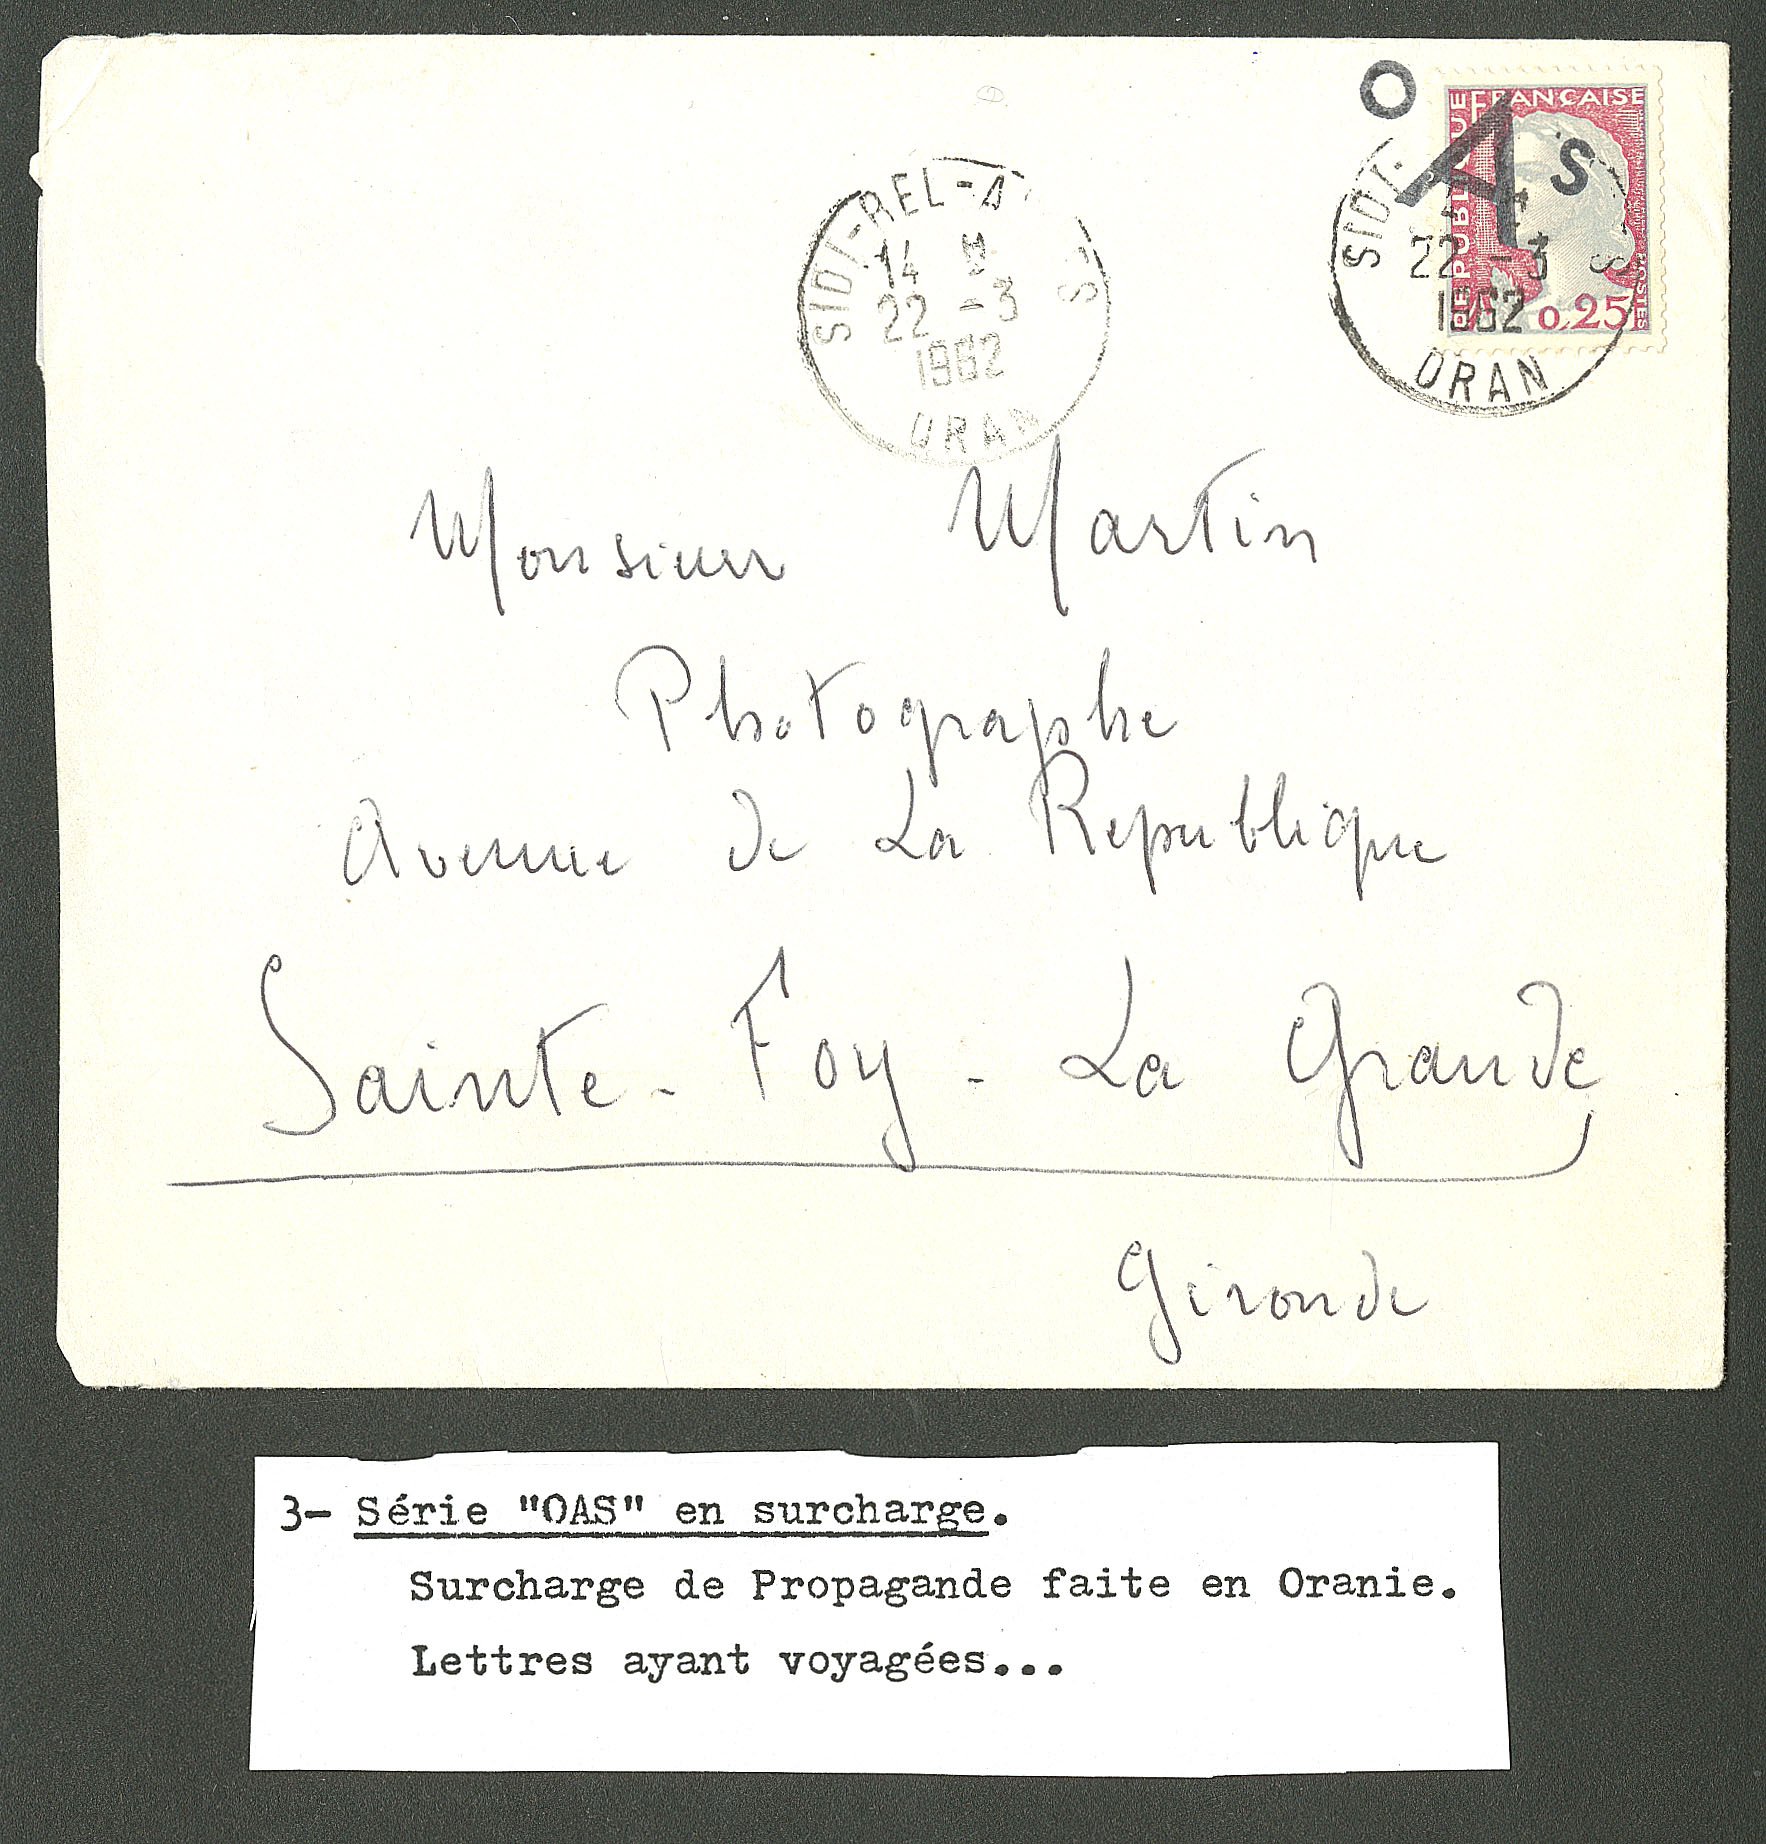 O A S
REPUBLIQUE FRANÇAISE
0,25
SIDI-BEL-A S
14 H
22 -3
1962
ORAN
SIDI- S
22 -3
1962
ORAN
Monsieur Martin
Photographe
Avenue de La Republique
Sainte-Foy-La Grande
Gironde
3- Série "OAS" en surcharge.
Surcharge de Propagande faite en Oranie.
Lettres ayant voyagées...